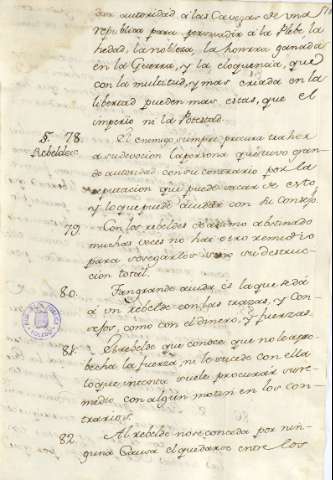 dan autoridad, a las Cavezas de una
republica para persuadir a la Plebe la
hedad, la nobleza, la honrra ganada
en la Guerra, y la eloquencia, que
con la multitud, y mas criada en la
libertad pueden mas estas, que el
imperio ni la Potestad.
§. 78. El enemigo siempre procura traher
Rebeldes a su devocion la persona que tuvo gran-
de autoridad con su contrario por la
reputacion que puede sacar de esto
y lo que puede ayudar con su Consejo
79. Con los rebeldes de animo obstinado
muchas veces no hai otro remedio
para sosegarlos sino su destruc-
cion total.
80. Tan grande aiuda es la que se da
a un rebelde con las trazas, y Con-
sejos, como con el dinero, y fuerzas.
81. El rebelde que conoce que no le apro-
becha la fuerza, ni le sucede con ella
lo que intenta suele procurar su re-
medio con algun motin en los con-
trarios.
82. Al rebelde no se conceda por nin-
guna Causa el quedarse entre los